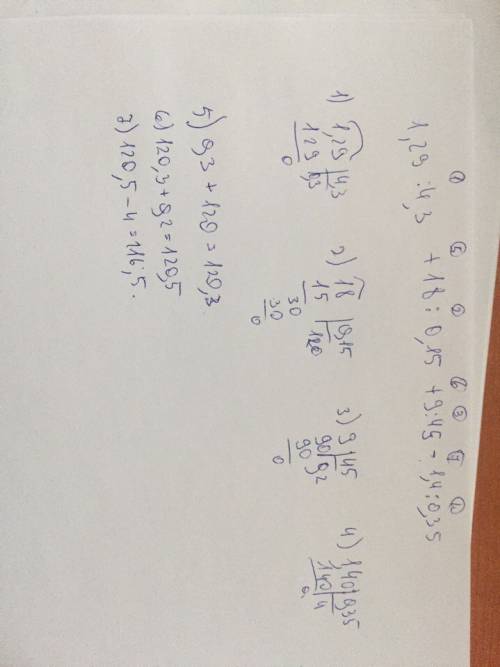 1,29:4,3 + 18:0,15 + 9:45 - 1,4:0,35
1) 1,29 4,3
129 0,3
0
2) 18 0,15
15 120
30
30
0
3) 9 45
90 0,2
90
0
4) 1,40 0,35
140 4
0
5) 0,3 + 120 = 120,3
6) 120,3 + 0,2 = 120,5
7) 120,5 - 4 = 116,5.